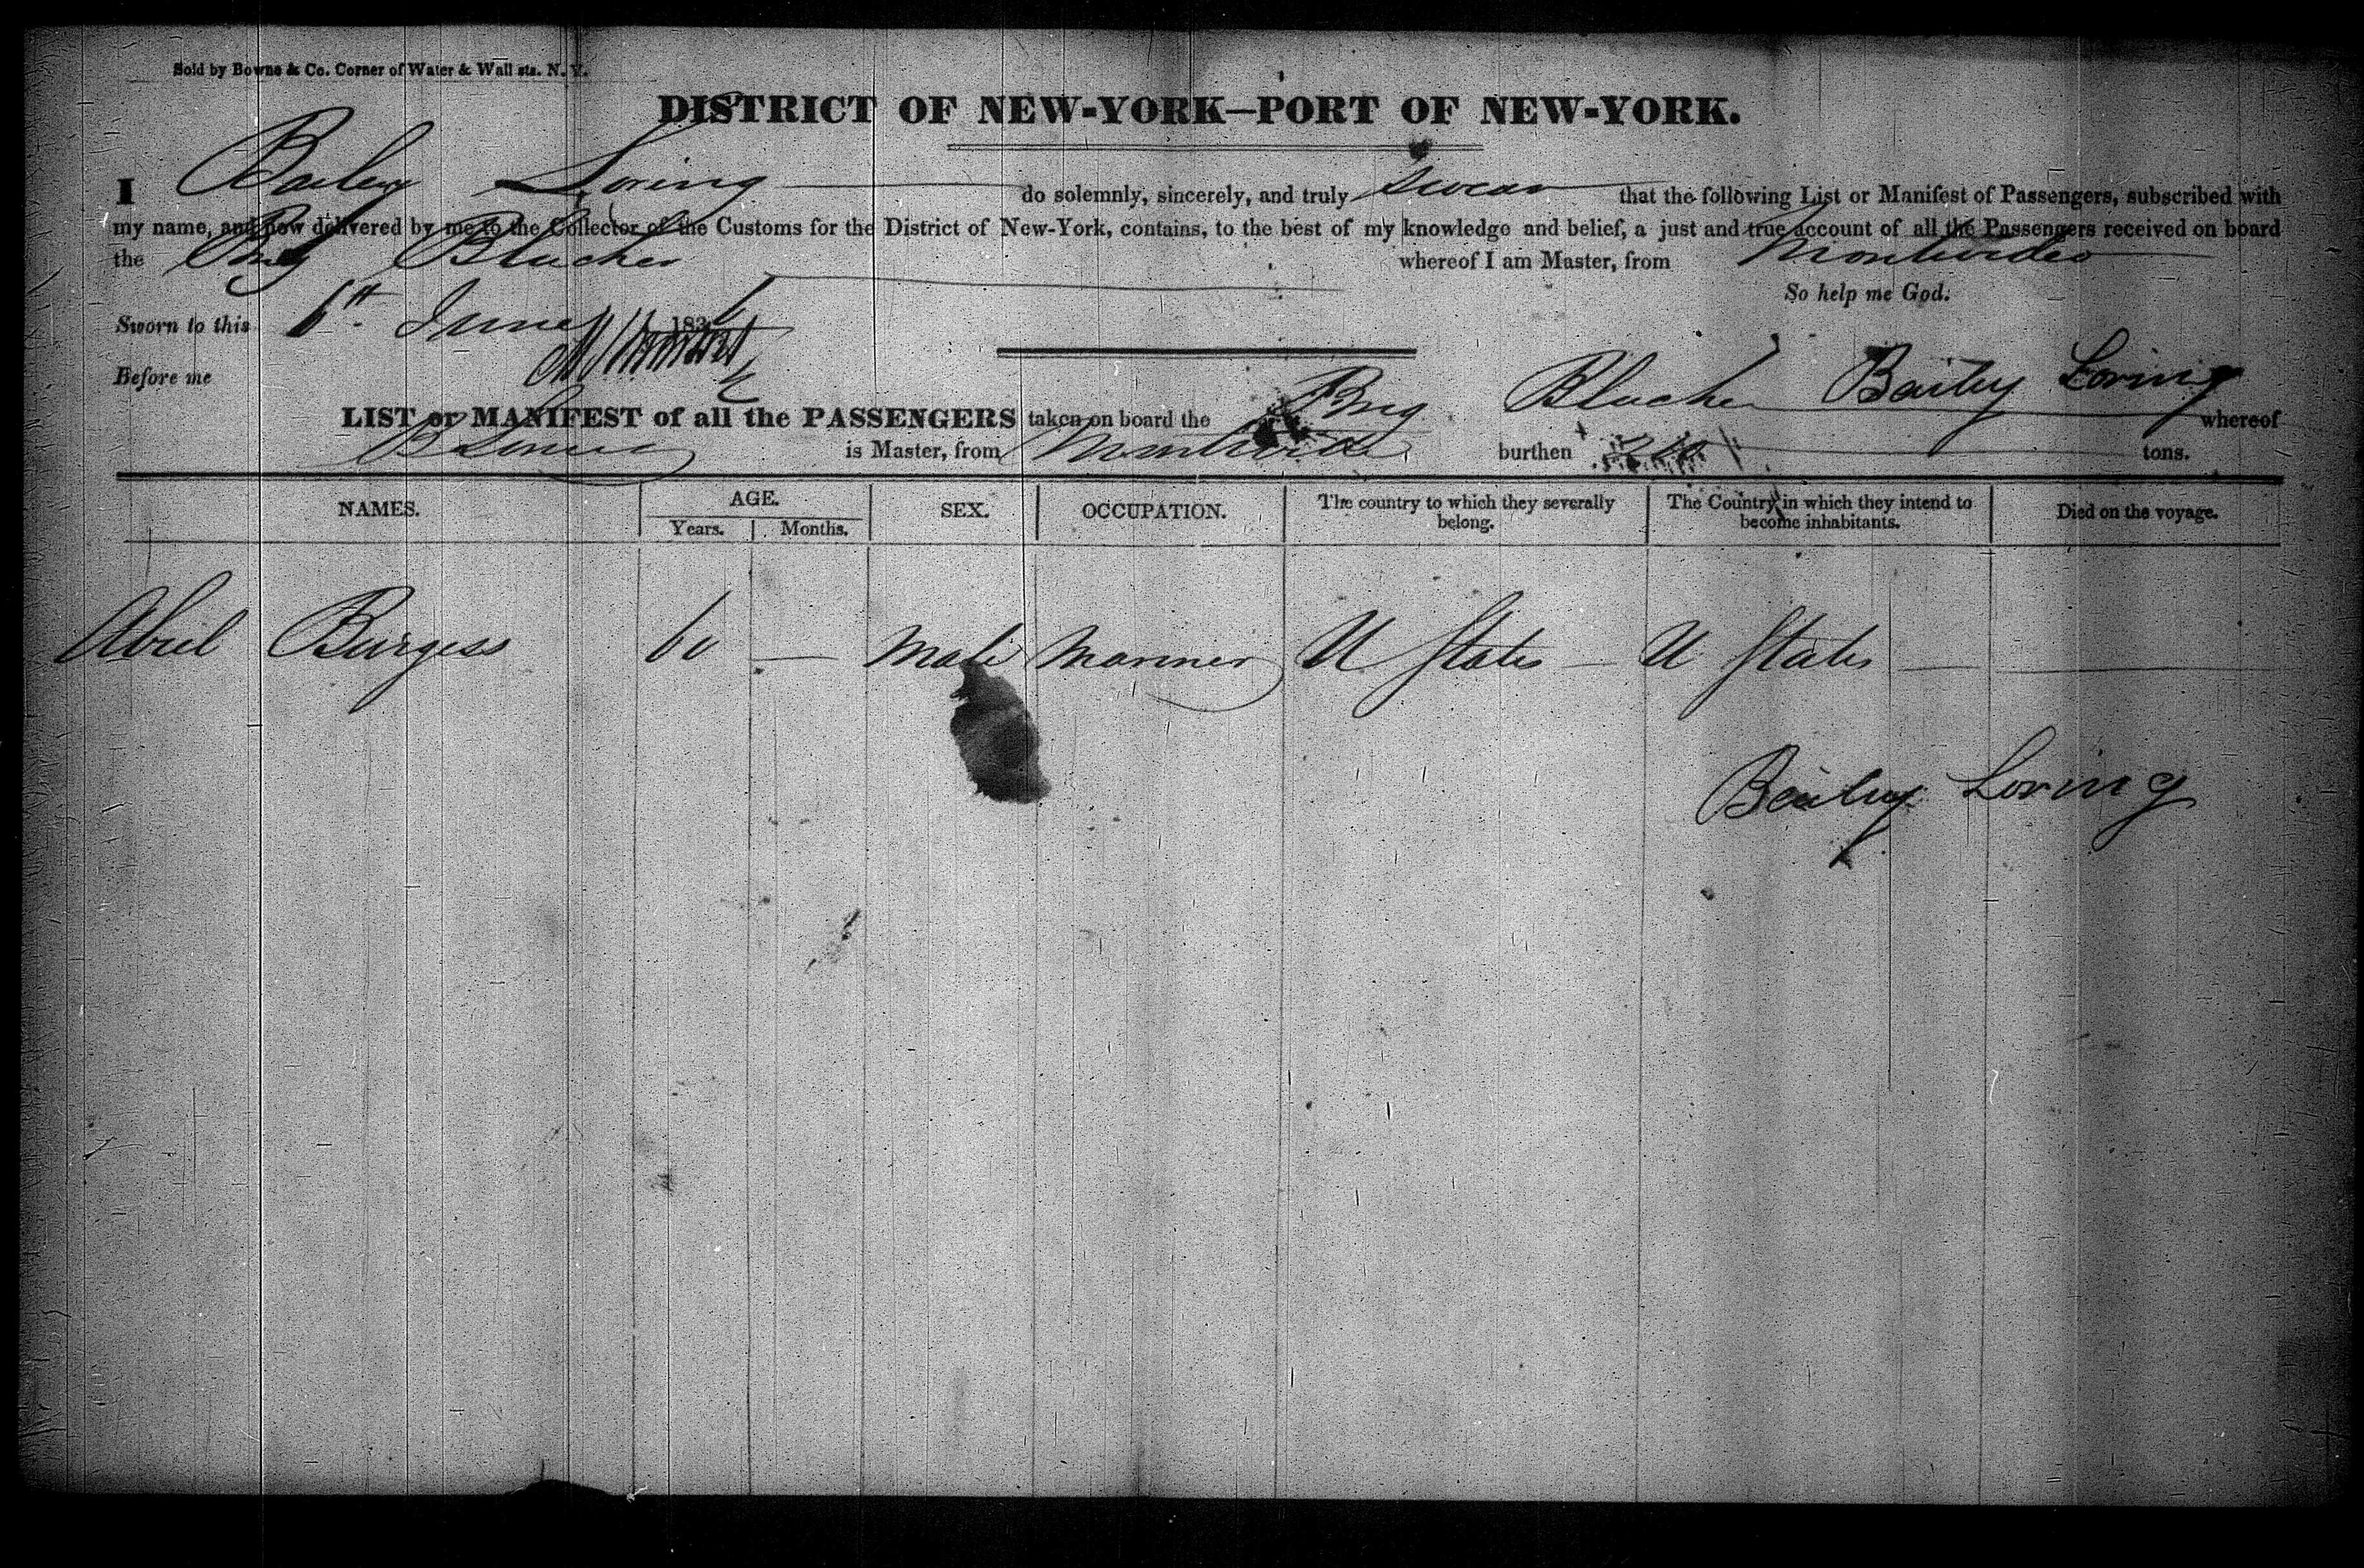 Sold by Bowne & Co. Corner of Water & Wall sts. N. Y.
DISTRICT OF NEW-YORK—PORT OF NEW-YORK.
I Bailey Loring do solemnly, sincerely, and truly swear that the following List or Manifest of Passengers, subscribed with
my name, and now delivered by me to the Collector of the Customs for the District of New-York, contains, to the best of my knowledge and belief, a just and true account of all the Passengers received on board
the Brig Blucher whereof I am Master, from Montevideo
So help me God.
Sworn to this 6th June 1836
Before me
Bailey Loring
LIST or MANIFEST of all the PASSENGERS taken on board the Brig Blucher whereof
B Loring is Master, from Montevideo burthen tons.
NAMES. AGE. SEX. OCCUPATION. The country to which they severally belong. The Country in which they intend to become inhabitants. Died on the voyage.
Years. Months.
Burgess 60 — Male Mariner U States — U States —
Bailey Loring